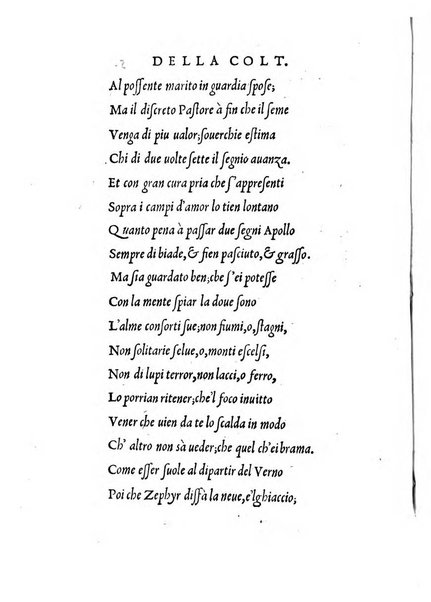 DELLA COLT.
Al possente marito in guardia spose;
Ma il discreto Pastore à fin che il seme
Venga di piu ualor; souerchie estima
Chi di due uolte sette il segnio auanza.
Et con gran cura pria che s'appresenti
Sopra i campi d'amor lo tien lontano
Quanto pena à passar due segni Apollo
Sempre di biade, & fien pasciuto, & grasso.
Ma sia guardato ben; che s'ei potesse
Con la mente spiar la doue sono
L'alme consorti sue; non fiumi, o, stagni,
Non solitarie selue, o, monti escelsi,
Non di lupi terror, non lacci, o ferro,
Lo porrian ritener; che'l foco inuitto
Vener che uien da te lo scalda in modo
Ch' altro non sà ueder; che quel ch'ei brama.
Come esser suole al dipartir del Verno
Poi che Zephyr dissà la neue, e'l ghiaccio;